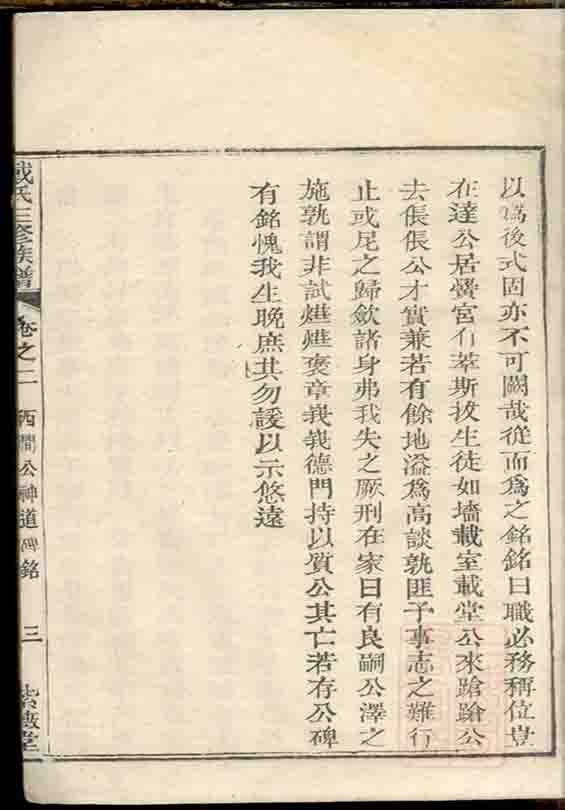 以為後式固亦不可闕哉從而為之銘銘曰職必務稱位豈
在達公居黌宮有萃斯拔生徒如墻載室載堂公來蹌蹌公
去倀倀公才實兼若有餘地溢為高談孰匪予事志之難行
止或尼之歸斂諸身弗我失之厥刑在家曰有良嗣公澤之
施孰謂非試爗爗褒章峩峩德門持以質公其亡若存公碑
有銘愧我生晚庶其勿諼以示悠遠
戴氏三修族譜
卷之二
西澗公神道碑銘
三
紫微堂